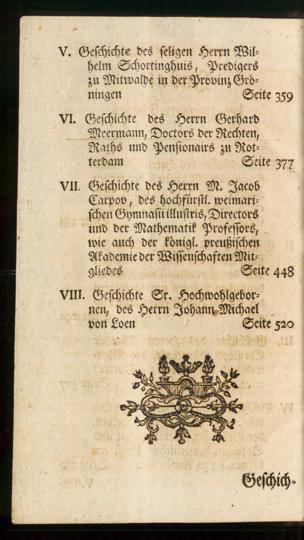 V. Geschichte des seligen Herrn Wil-
helm Schortinghuis, Predigers
zu Mitwalde in der Provinz Grö-
ningen Seite 359
VI. Geschichte des Herrn Gerhard
Meermann, Doctors der Rechten,
Raths und Pensionairs zu Rot-
terdam Seite 377
VII. Geschichte des Herrn M. Jacob
Carpov, des hochfürstl. weimari-
schen Gymnasii illustris, Directors
und der Mathematik Professors,
wie auch der königl. preußischen
Akademie der Wissenschaften Mit-
gliedes Seite 448
VIII. Geschichte Sr. Hochwohlgebor-
nen, des Herrn Johann Michael
von Loen Seite 520
Geschich-